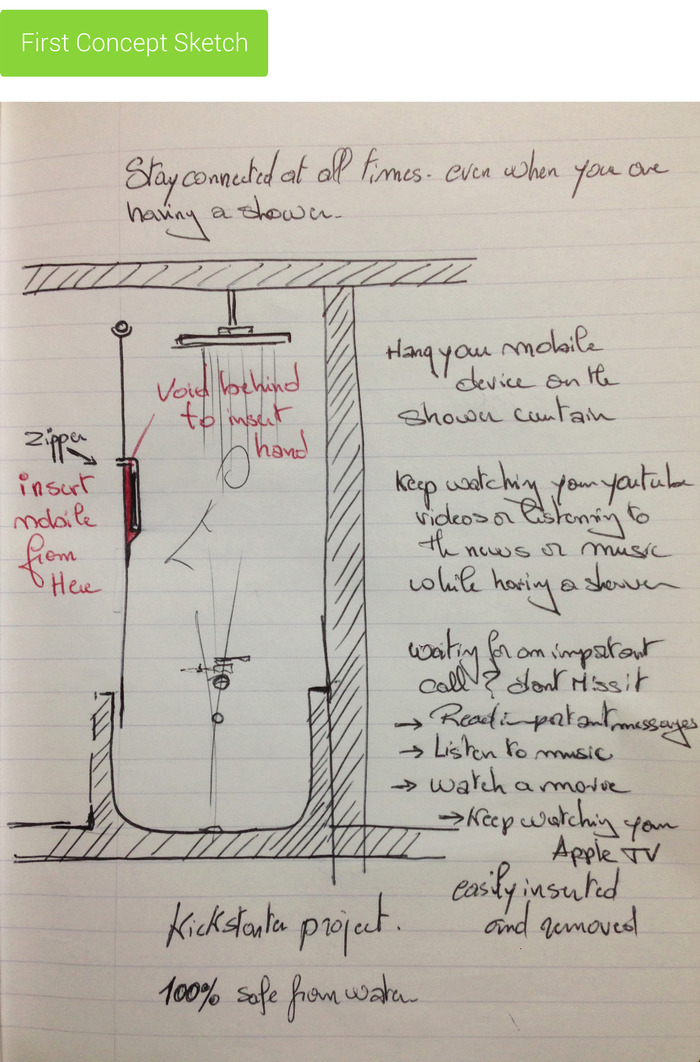 First Concept Sketch
Stay connected at all times. even when you are
having a shower.
Void behind
to insert
hand
Zipper
insert
mobile
from
Here
Hang your mobile
device on the
shower curtain
Keep watching your youtube
videos or listenning to
the news or music
while having a shower
waiting for an important
call? dont Miss it
→ Read important messages
→ Listen to music
→ watch a movie
→ Keep watching your
Apple TV
easily inserted
and removed
Kickstarter project.
100% safe from water